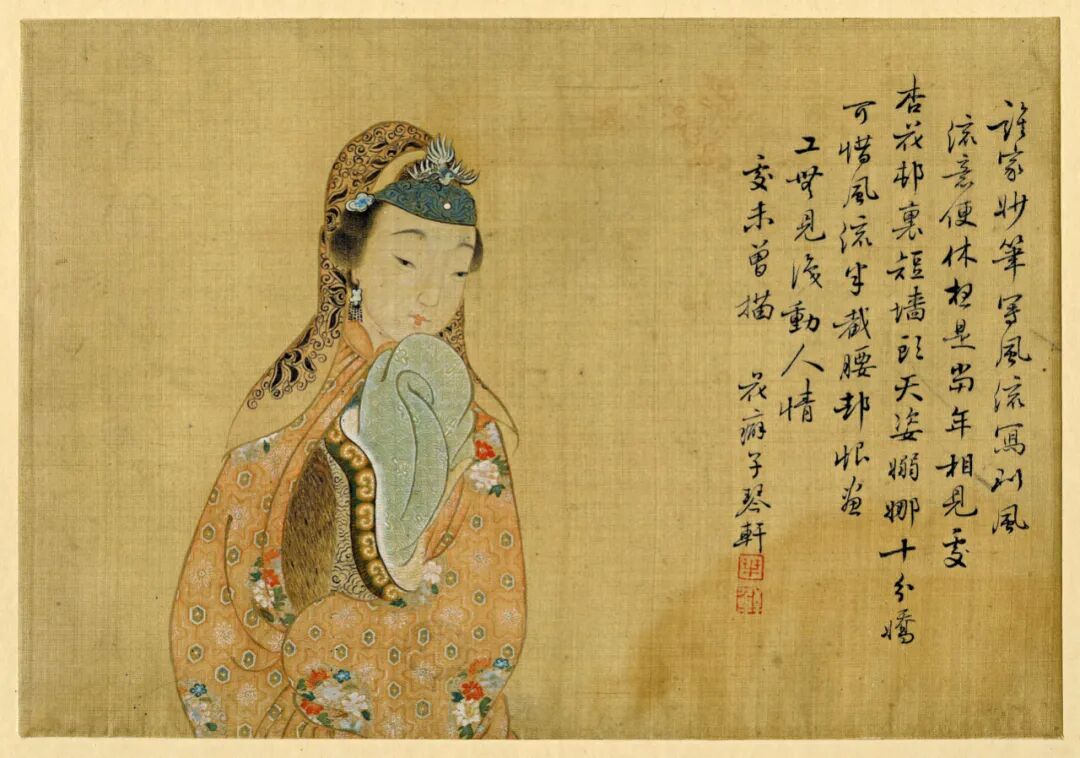 誰家妙筆写風流寫到風
流意便休想是當年相見處
杏花邨裏短墻頭天姿嫋娜十分嬌
可惜風流半截腰却恨畫
工無見識動人情
處未曾描 花癖子琴軒